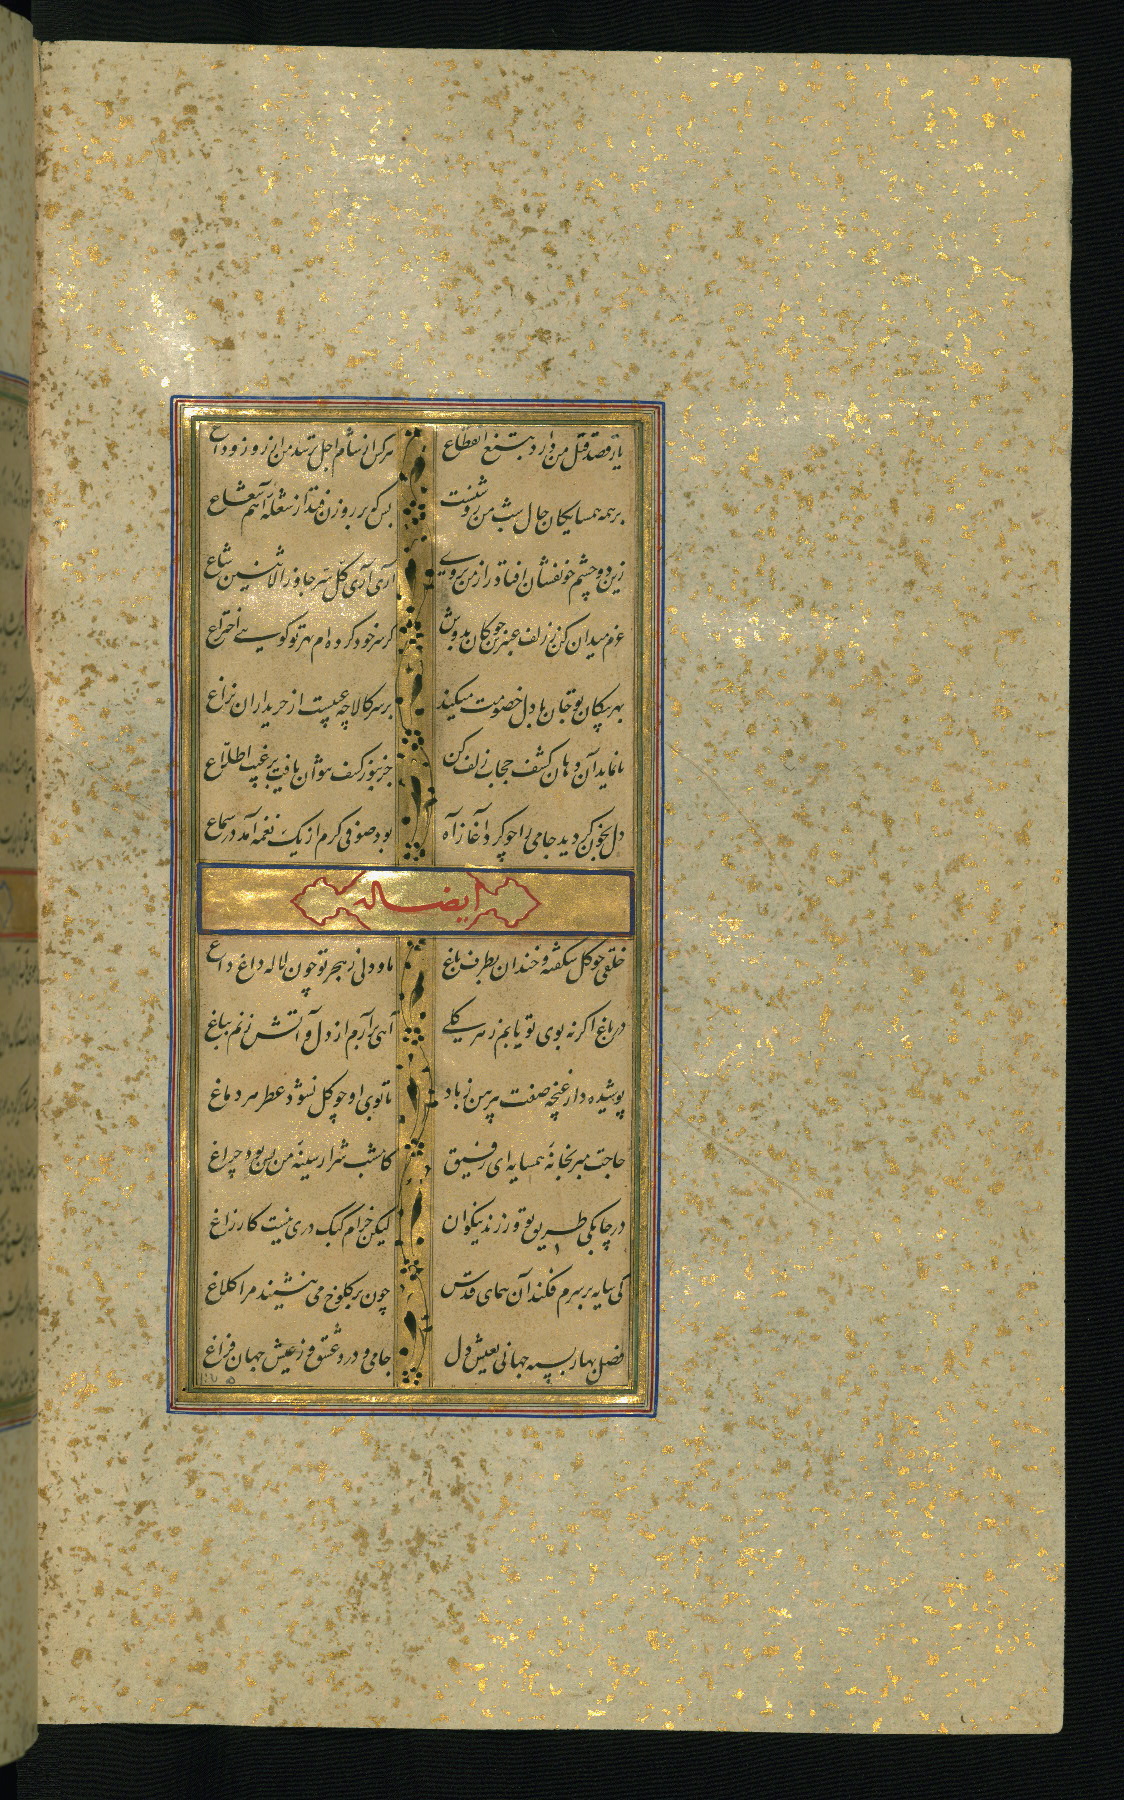 یار قصد قتل من دارد بتیغ انقطاع هرکس از شام اجل ترسد من از روز وداع
بر همه همسایکان حال شب من روشنست بس که بر روزن فتد از شعله آهم شعاع
زین دو چشم خونفشان افتاد راز من بروی آری آری کل سر جاوز الاثنین شاع
عزم میدان کن ز زلف عنبرین چوکان بدوش کز سر خود کرده‌ام بهر تو کویی اختراع
بهر پیکان تو جان با دل خصومت میکند بر سر کالا چه عیبست از خریداران نزاع
تا نماید آن دهان کشف حجاب زلف کن جز بنور کشف نتوان یافت بر غیب اطلاع
دل بخون کردید جامی را چو کرد آغاز آه بود صوفی کرم از یک نغمه آمد در سماع
ایضا له
خلقی چو کل شکفته و خندان بطرف باغ ما و دلی ز هجر تو چون لاله داغ داغ
در باغ اکر نه بوی تو یابم ز هر کلی آهی برآرم از دل و آتش زنم بباغ
پوشیده دار غنچه صفت پیرهن ز باد تا توی او چو کل نشود عطر هر دماغ
حاجت مبر بخانه همسایه ای رفیق کامشب شرار سینه من بس بود چراغ
در چابکی طریق تو ورزند نیکوان لیکن خرام کبک دری نیست کار زاغ
کی سایه بر سرم فکند آن همای قدس چون بر کلوخ می ننشیند مرا کلاغ
فصل بهار بسته جهانی بعیش دل جامی و درد عشق و ز عیش جهان فراغ